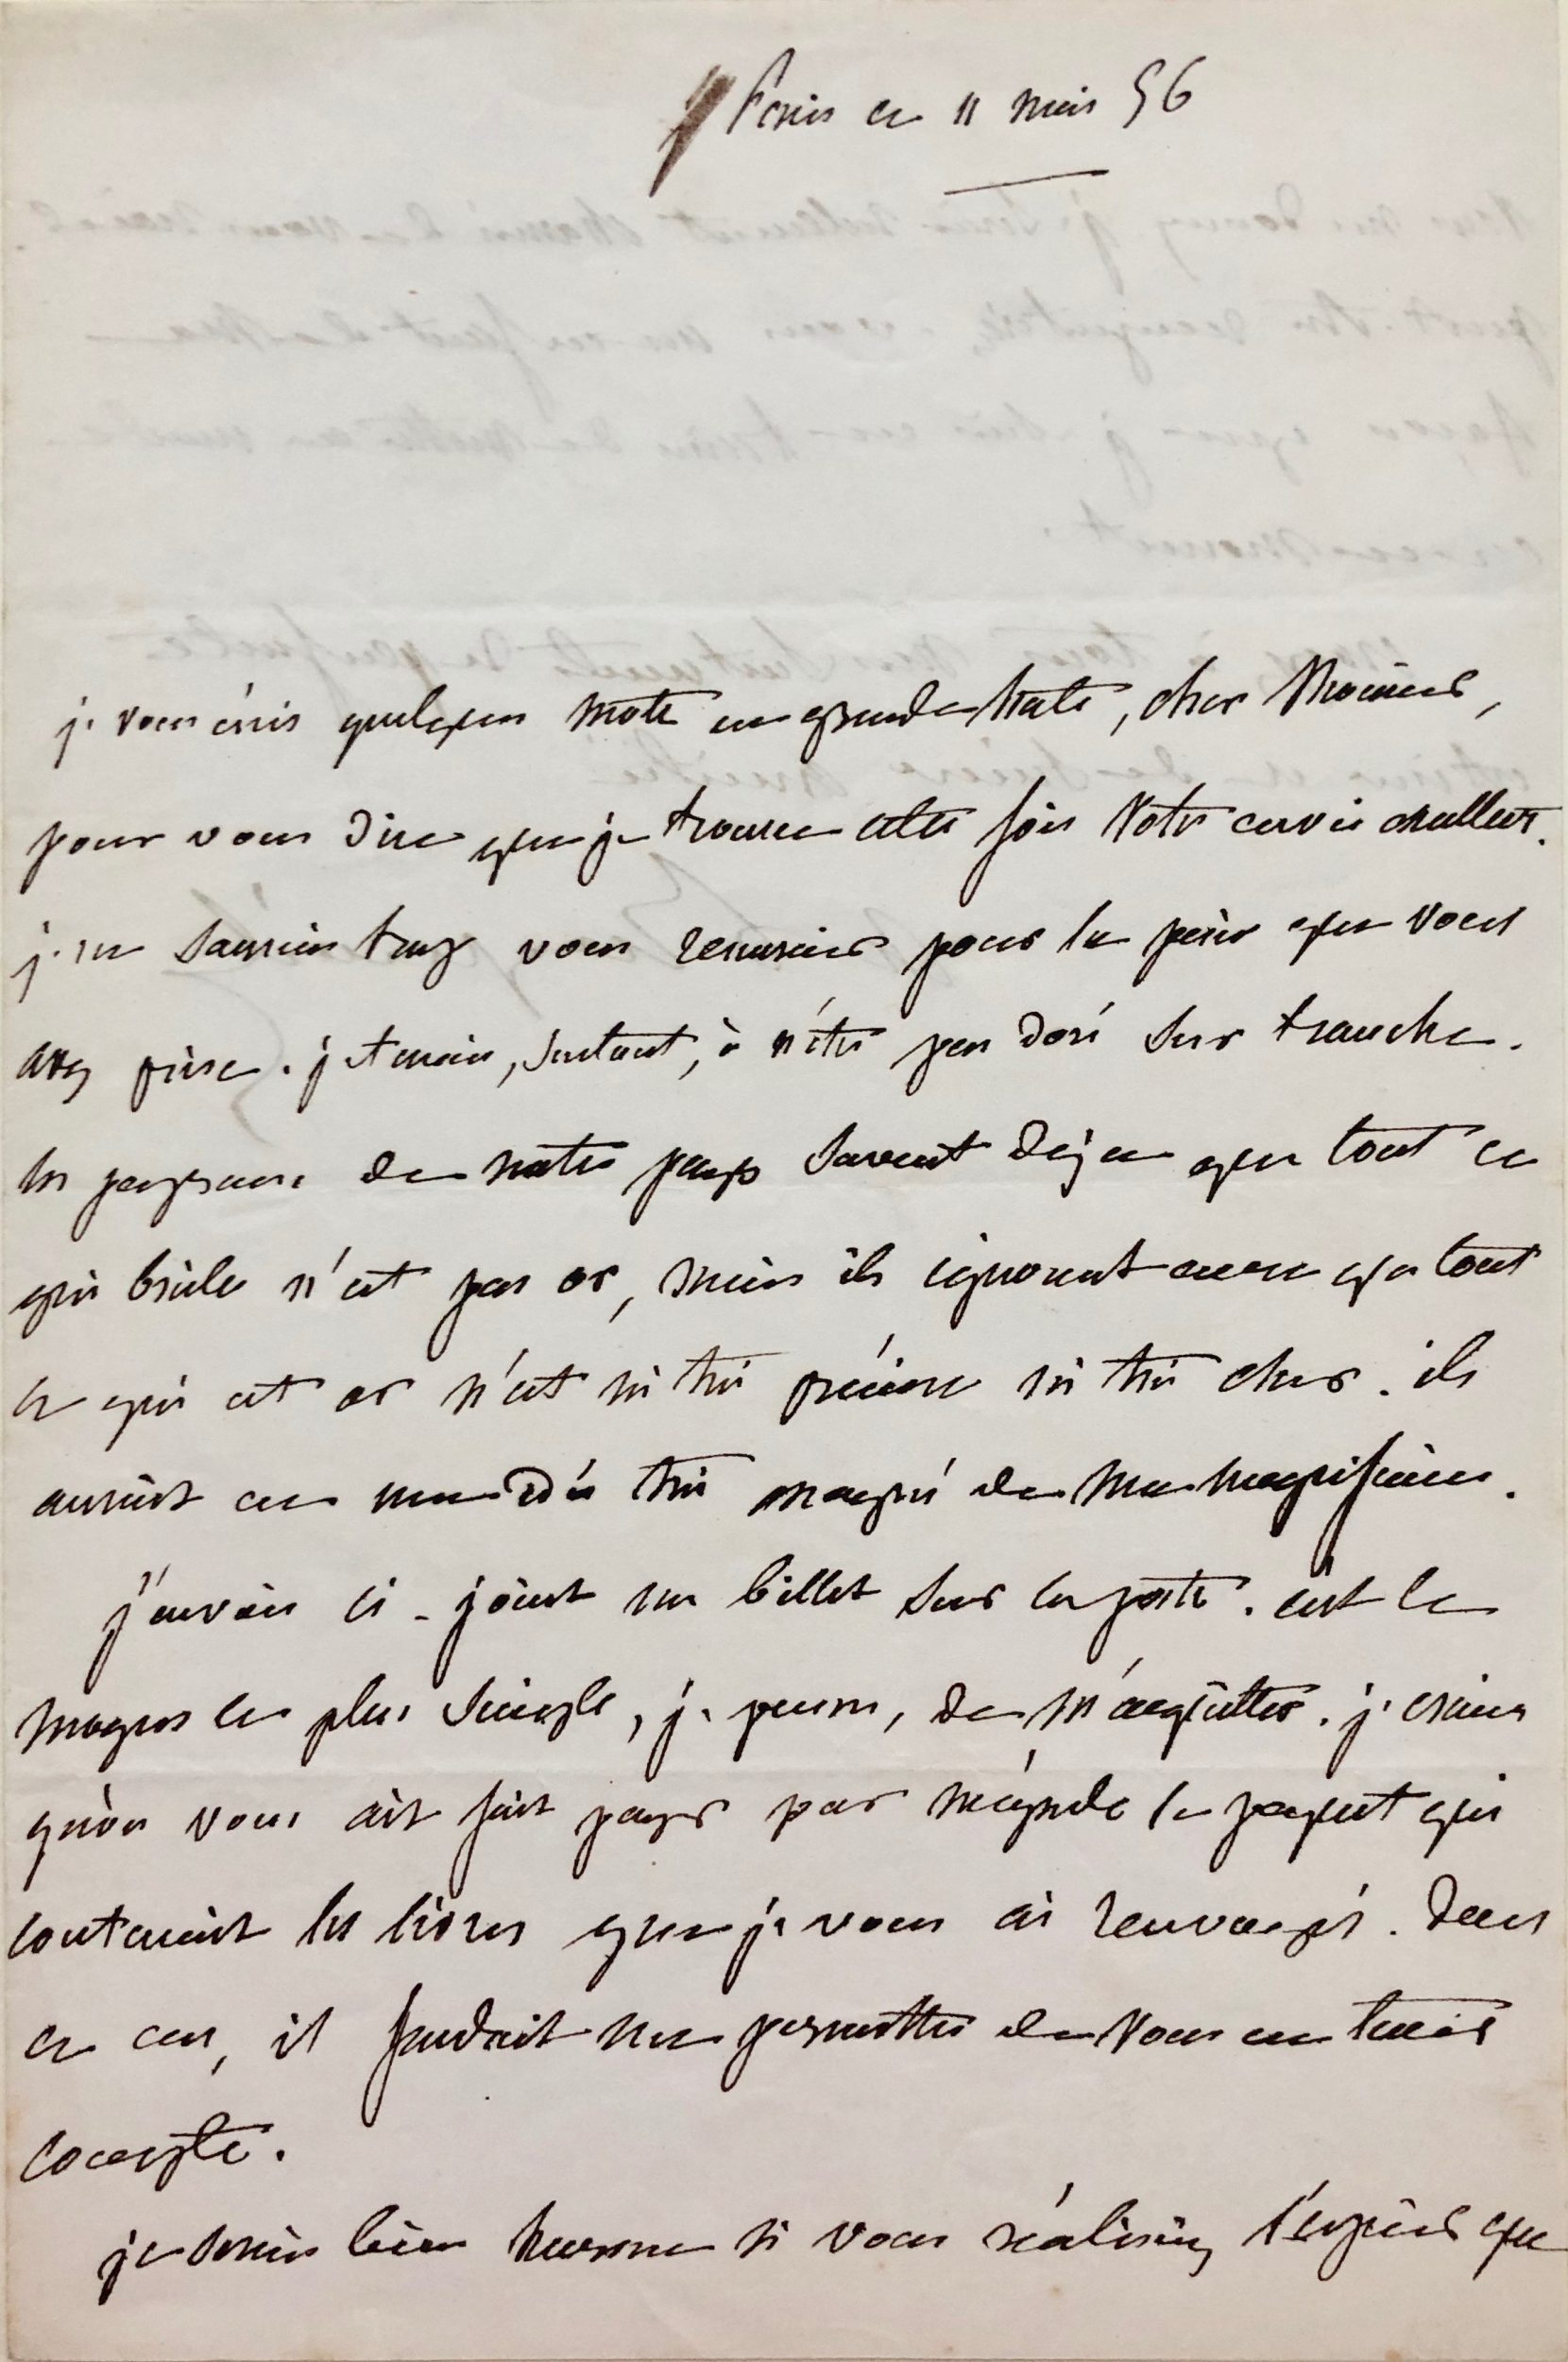 Paris ce 11 mars 56
je vous écris quelques mots en grande hâte, cher Monsieur,
pour vous dire que je trouve cette fois votre envoi excellent.
je ne saurais trop vous remercier pour la peine que vous
avez prise. je tenais, surtout, à n'être pas doré sur tranche.
les paysans de notre pays savent déjà que tout ce
qui brille n'est pas or, mais ils ignorent encore que tout
ce qui est or n'est ni très précieux ni très cher. ils
auraient en me très de ma magnificence.
j'envoie ci-joint un billet sur la poste. c'est le
moyen le plus simple, je pense, de m'acquitter. je crains
qu'on vous ait fait payer par mégarde le paquet qui
contenait les livres que je vous ai renvoyés. dans
ce cas, il faudrait me permettre de vous en tenir
compte.
je serais bien heureux si vous réalisiez l'espoir que